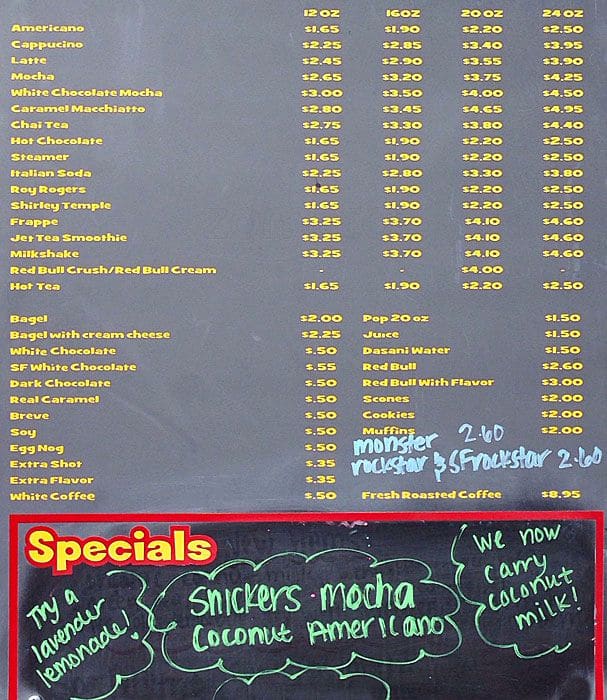 12 OZ 16OZ 20 OZ 24 OZ
Americano $1.65 $1.90 $2.20 $2.50
Cappucino $2.25 $2.85 $3.40 $3.95
Latte $2.45 $2.90 $3.55 $3.90
Mocha $2.65 $3.20 $3.75 $4.25
White Chocolate Mocha $3.00 $3.50 $4.00 $4.50
Caramel Macchiatto $2.80 $3.45 $4.65 $4.95
Chai Tea $2.75 $3.30 $3.80 $4.40
Hot Chocolate $1.65 $1.90 $2.20 $2.50
Steamer $1.65 $1.90 $2.20 $2.50
Italian Soda $2.25 $2.80 $3.30 $3.80
Roy Rogers $1.65 $1.90 $2.20 $2.50
Shirley Temple $1.65 $1.90 $2.20 $2.50
Frappe $3.25 $3.70 $4.10 $4.60
Jet Tea Smoothie $3.25 $3.70 $4.10 $4.60
Milkshake $3.25 $3.70 $4.10 $4.60
Red Bull Crush/Red Bull Cream - - $4.00 -
Hot Tea $1.65 $1.90 $2.20 $2.50
Bagel $2.00 Pop 20 oz $1.50
Bagel with cream cheese $2.25 Juice $1.50
White Chocolate $.50 Dasani Water $1.50
SF White Chocolate $.55 Red Bull $2.60
Dark Chocolate $.50 Red Bull With Flavor $3.00
Real Caramel $.50 Scones $2.00
Breve $.50 Cookies $2.00
Soy $.50 Muffins $2.00
Egg Nog $.50 monster 2.60
Extra Shot $.35 rockstar & SFrockstar 2.60
Extra Flavor $.35
White Coffee $.50 Fresh Roasted Coffee $8.95
Specials
Try a
lavender
lemonade!
Snickers mocha
Coconut Americano
We now
carry
coconut
milk!